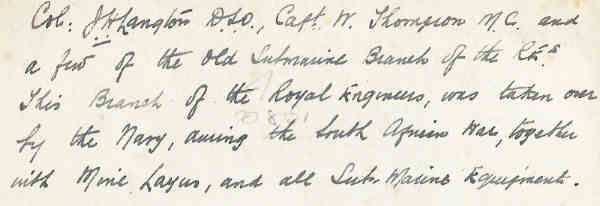 Col: J.H Langton D.S.O., Capt. W. Thompson M.C. and
a few of the Old Submarine Branch of the R.E.s
This Branch of the Royal Engineers, was taken over
by the Navy, during the South African War, together
with Mine Layers, and all Sub Marine Equipment.